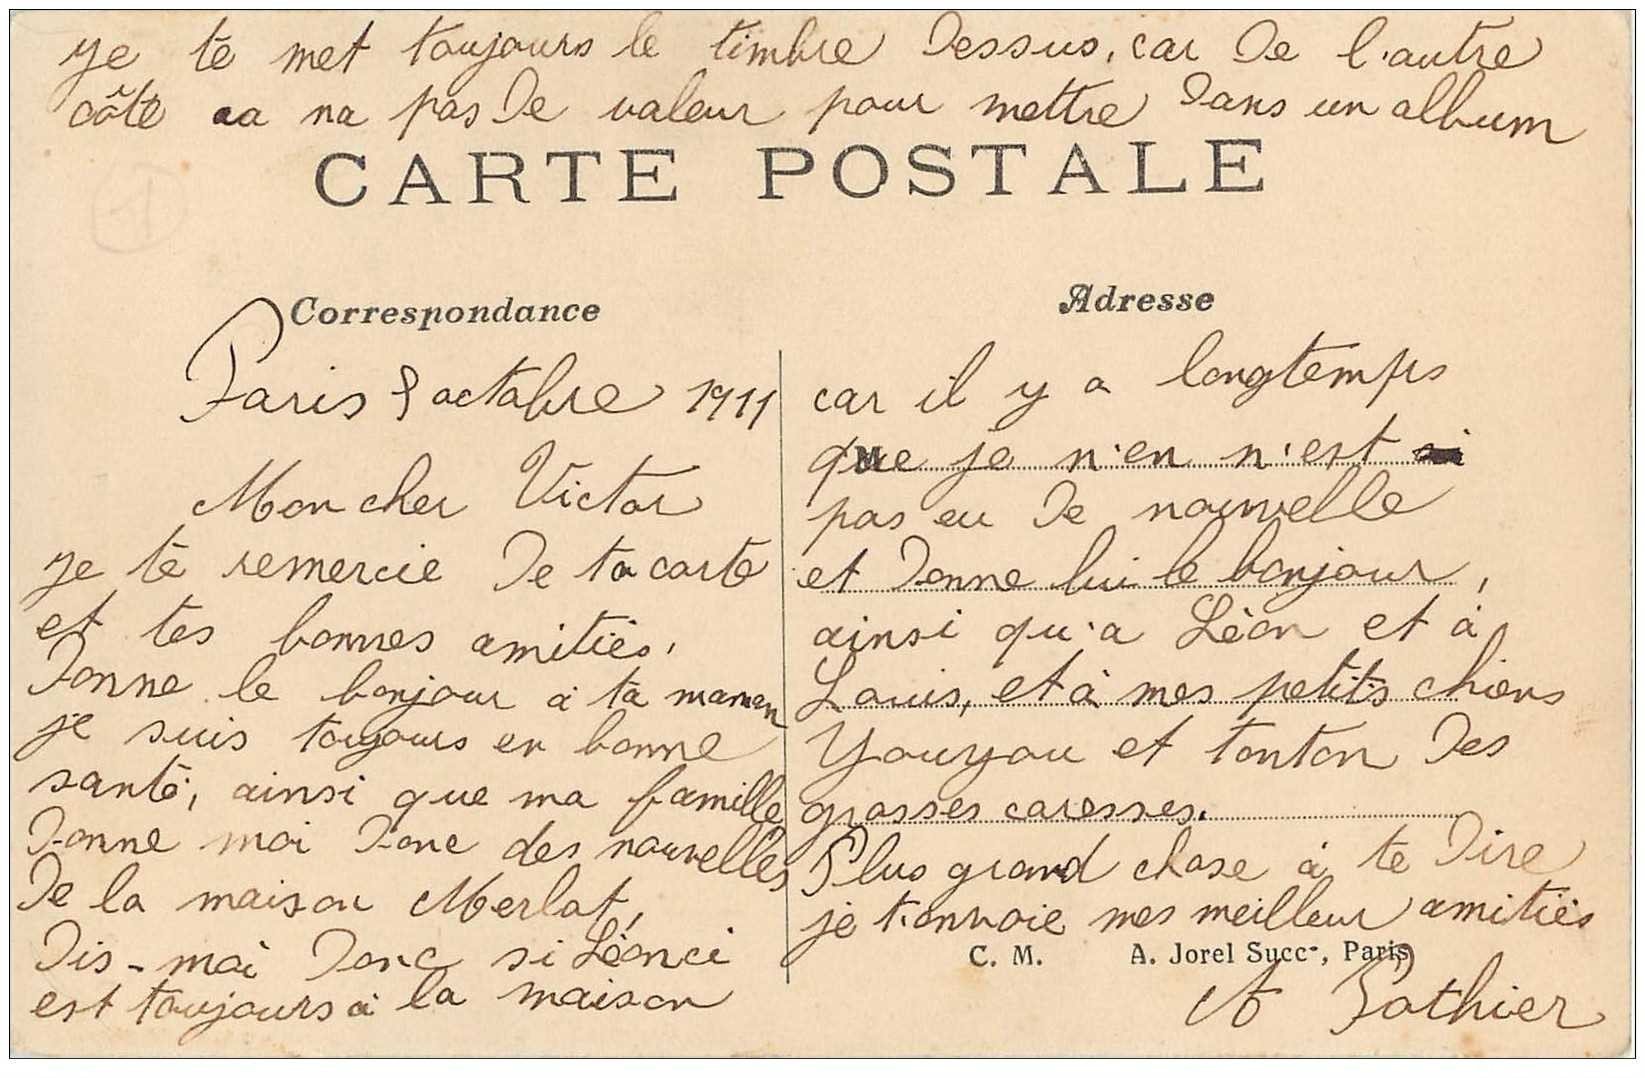 je te met toujours le timbre dessus, car de l'autre
côté ça na pas de valeur pour mettre dans un album
CARTE POSTALE
Correspondance
Paris 8 octobre 1911
Mon cher Victor
je te remercie de ta carte
et tes bonnes amitiés,
donne le bonjour à ta maman
je suis toujours en bonne
santé, ainsi que ma famille
donne moi donc des nouvelles
de la maison Merlat,
dis-moi donc si Léonci
est toujours à la maison
Adresse
car il y a longtemps
que je n'en n'est
pas eu de nouvelle
et donne lui le bonjour,
ainsi qu'a Léon et à
Louis, et à mes petits chiens
Youyou et tonton des
grosses caresses.
Plus grand chose à te dire
je t'envoie mes meilleur amitiés
C. M. A. Jorel Succr, Paris
A Pothier